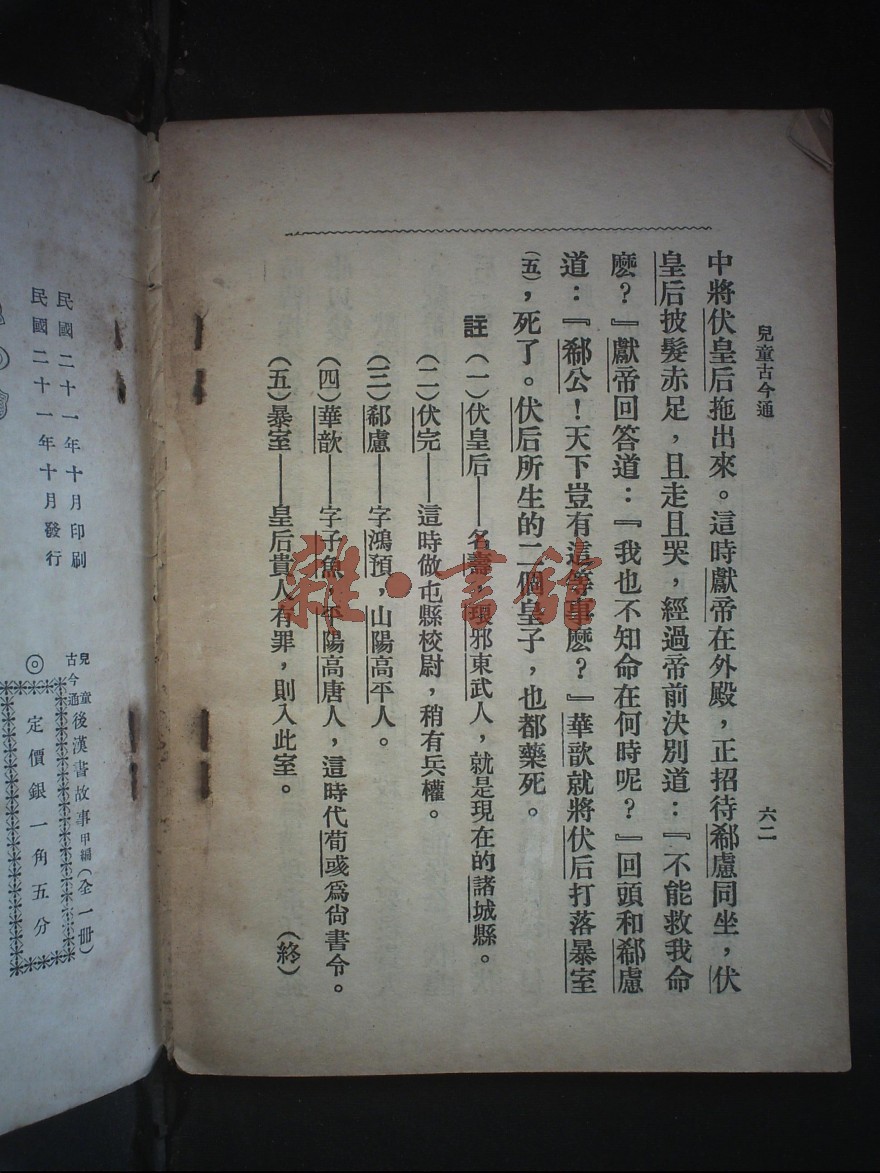 兒童古今通
六二
中將伏皇后拖出來。這時獻帝在外殿，正招待郗慮同坐，伏
皇后披髮赤足，且走且哭，經過帝前決別道：『不能救我命
麽？』獻帝回答道：『我也不知命在何時呢？』回頭和郗慮
道：『郗公！天下豈有這等事麽？』華歆就將伏后打落暴室
㈤，死了。伏后所生的二個皇子，也都藥死。
註（一）伏皇后——名壽，琅邪東武人，就是現在的諸城縣。
（二）伏完——這時做屯縣校尉，稍有兵權。
（三）郗慮——字鴻預，山陽高平人。
（四）華歆——字子魚，平陽高唐人，這時代荀彧爲尙書令。
（五）暴室——皇后貴人有罪，則入此室。（終）
雜·書館
民國二十一年十月印刷
民國二十一年十月發行
兒童古今通後漢書故事甲編（全一冊）
◎定價銀一角五分